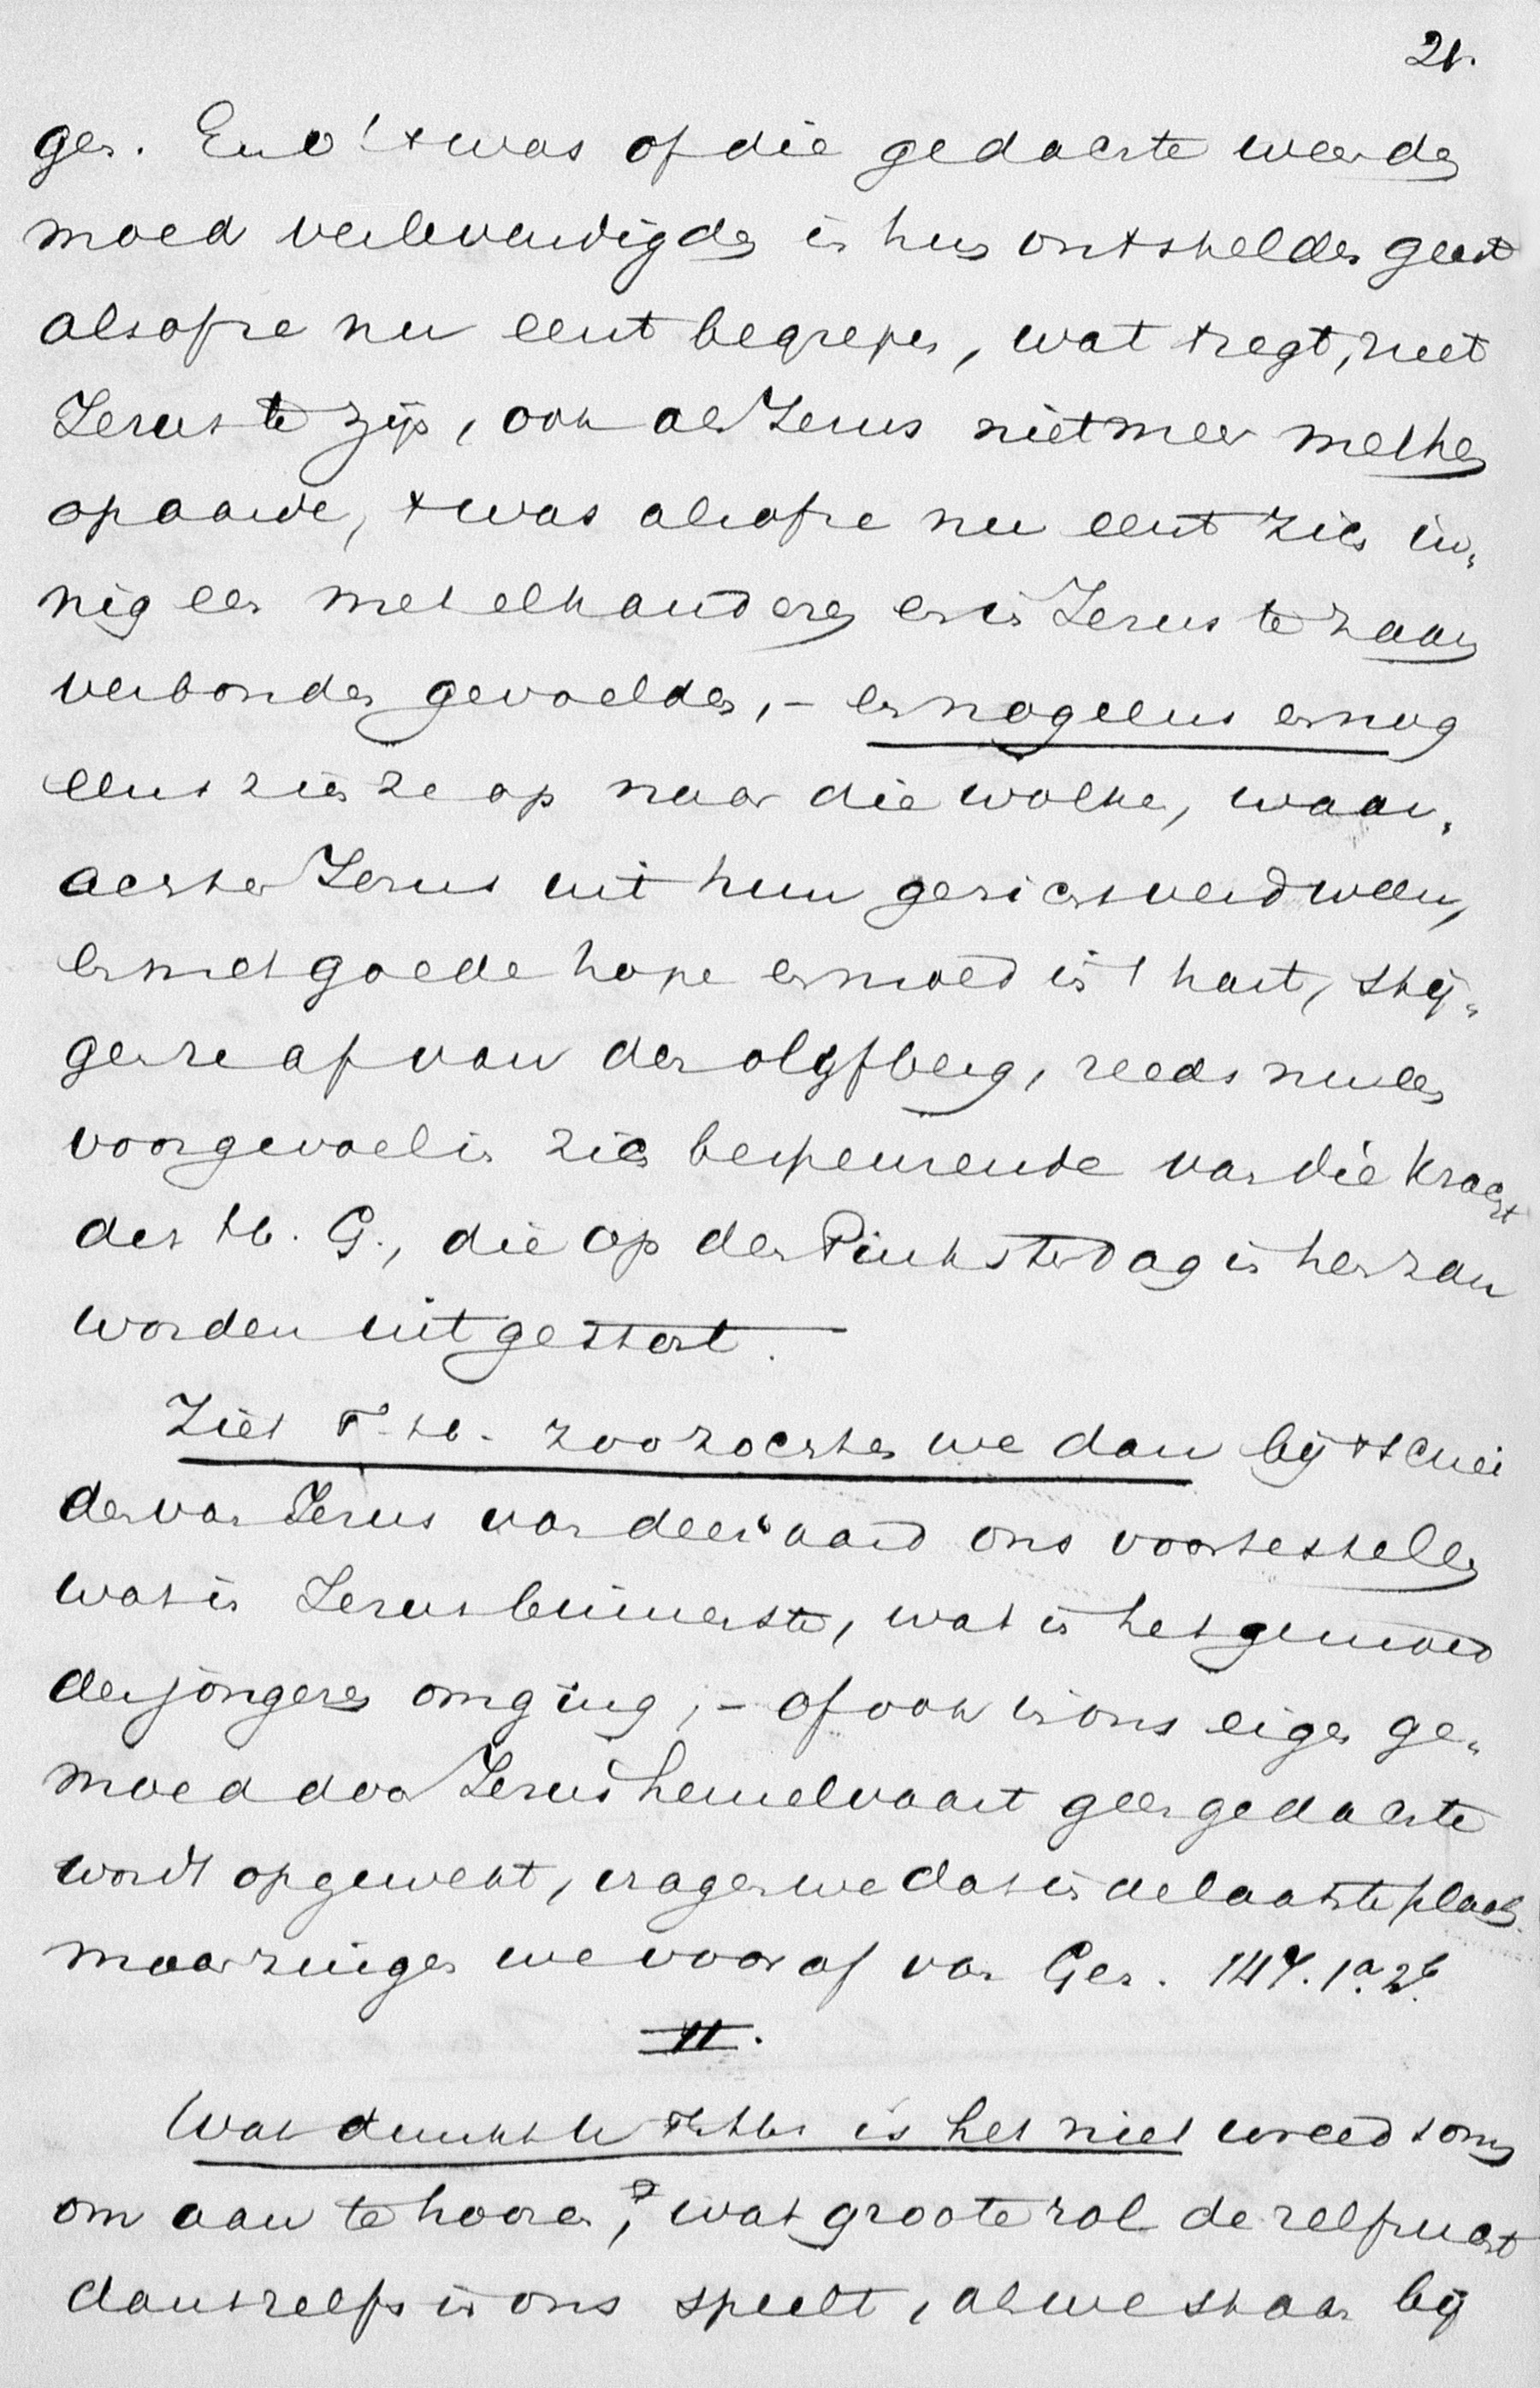 21.
gen. En o! 't was of die gedachte weer de
moed verlevendigde in hun ontstelden geest
alsof ze nu eerst begrepen, wat 't zegt, met
Jezus te zijn, ook als Jezus niet meer met hen
op aarde, 't was alsof ze nu eerst zich in-
niger met elkanderen en in Jezus te zaam
verbonden gevoelden, – en nog eens en nog
eens zien ze op naar die wolken, waar-
achter Jezus uit hun gezicht verdween,
en met goede hope en moed in 't hart, stij-
gen ze af van den olijfberg, reeds nu een
voorgevoel in zich bespeurende van die kracht
des H. G., die op den Pinksterdag in hen zou
worden uitgestort.
Ziet T. H. zoo zochten we dan bij 't schei
den van Jezus van deez' aard ons voor te stellen
wat in Jezus binnenste, wat in het gemoed
der jongeren omging, – of ook in ons eigen ge-
moed door Jezus hemelvaart geen gedachte
wordt opgewekt, vragen we dat in de laatste plaats.
maar zingen we vooraf van Gez. 147. 1a. 2b.
II.
Wat dunkt U is het niet wreed soms
om aan te hooren,? wat groote rol de zelfzucht
dan zelfs in ons speelt, als we staan bij